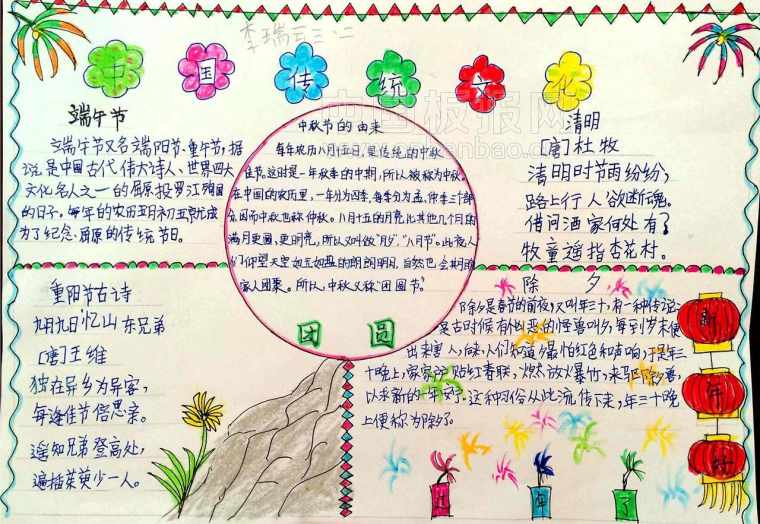 李瑞云三、二
中国传统文化
端午节
端午节又名端阳节、重午节,据
说是中国古代伟大诗人、世界四大
文化名人之一的屈原投罗江殉国
的日子。每年的农历五月初五竞成
为了纪念屈原的传统节日。
中秋节的由来
每年农历八月十五日,是传统的中秋
佳节。这时是一年秋季的中期,所以被称为中秋。
在中国的农历里,一年分为四季,每季分为孟、仲、季三个部
因而中秋也称仲秋。八月十五的月亮比其他几个月的
满月更圆,更明亮,所以又叫做"月夕","八月节"。此夜人
们仰望天空如玉如盘的朗朗明月,自然也会期盼
家人团聚。所以,中秋又称"团圆节"。
团圆
清明
[唐]杜牧
清明时节雨纷纷,
路上行人欲断魂。
借问酒家何处有?
牧童遥指杏花村。
重阳节古诗
九月九日忆山东兄弟
[唐]王维
独在异乡为异客,
每逢佳节倍思亲。
遥知兄弟登高处,
遍插茱萸少一人。
除夕
除夕是春节的前夜,又叫年三十。有一种传说:
是古时候有个凶恶的怪兽叫夕,每到岁末便
出来害人,后来,人们知道夕最怕红色和声响,于是年三
十晚上,家家户户贴红春联,燃放爆竹,来驱除夕兽,
以求新的一年安宁。这种习俗从此流传下来,年三十晚
上便称为除夕了。
新年好
过年了